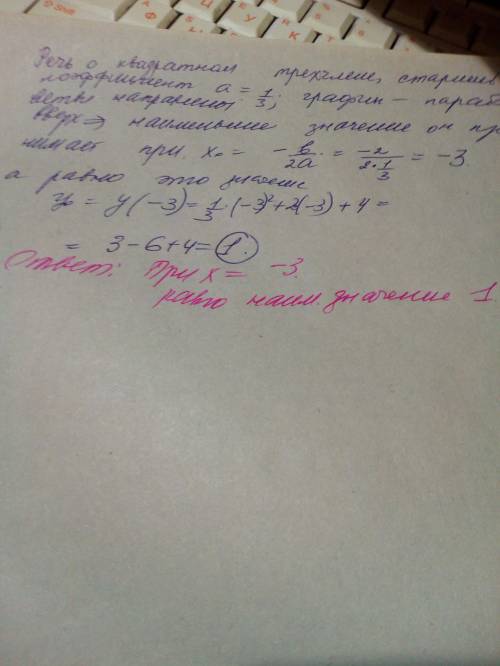 Речь о квадратном трехчлене, старший
коэффициент a = 1/3; график – параб
ветви направлены
вверх ⇒ наименьшее значение он пр
нимает при x₀ = -b/2a = -2/(2·1/3) = -3
а равно это значение
y₀ = y(-3) = 1/3·(-3)²+2(-3)+4 =
= 3-6+4=1.
Ответ: При x = -3.
равно наим. значение 1